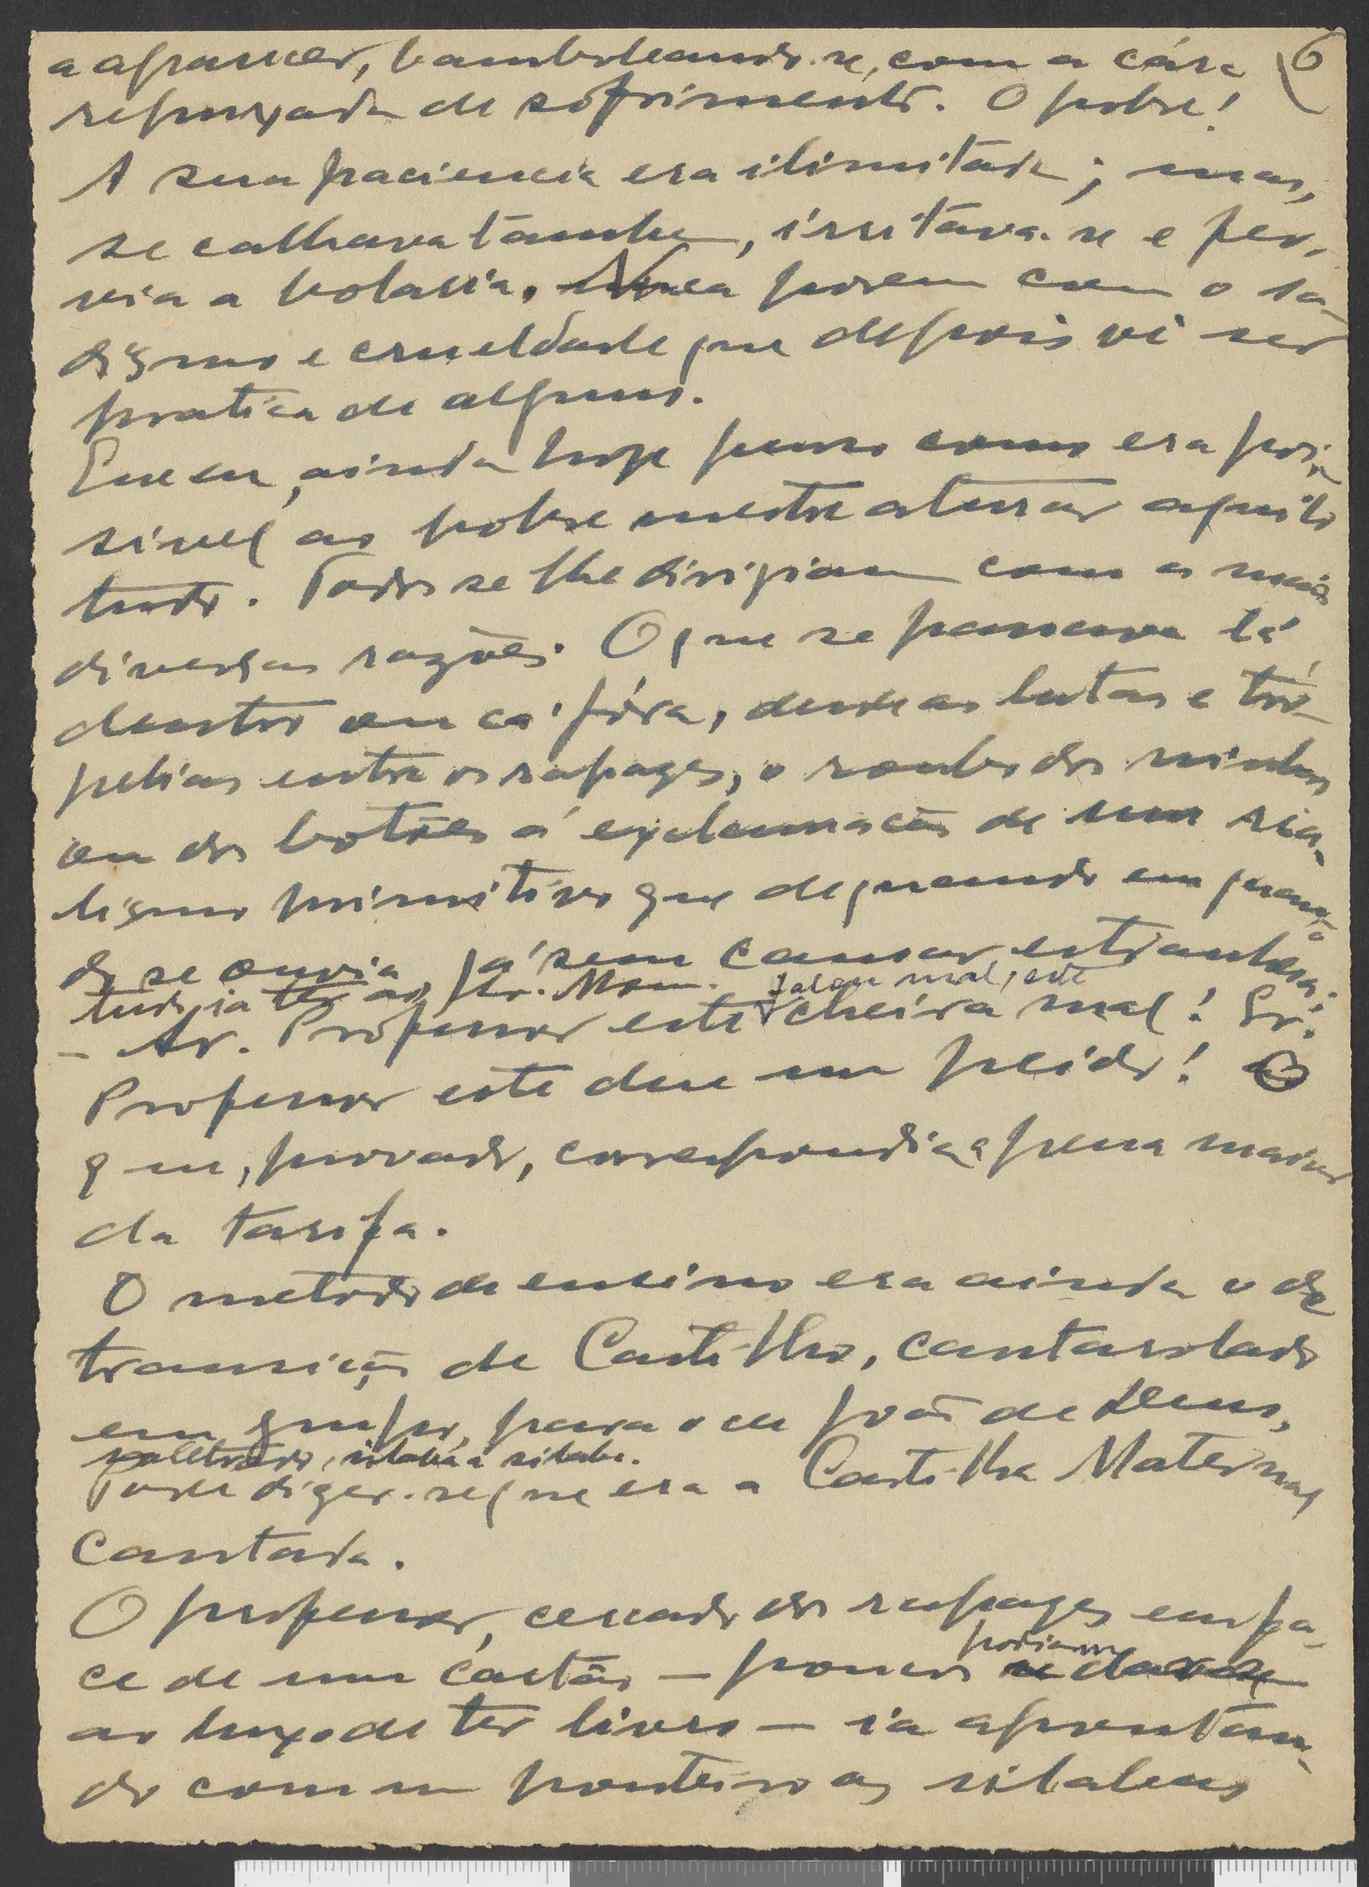 a aparecer, bamboleando-se, com a cára 6
repuxada de sofrimento. O pobre!
A sua paciencia era ilimitada; mas,
se calhava tambem, irritava-se e fer-
via a bolaria. Nunca porem com o sa-
dismo e crueldade que depois vi ser
pratica de alguns.
Eu, ainda hoje penso como era pos-
sivel ao pobre mestre aturar aquilo
tudo. Todos se lhe dirigiam com as mais
diversas razões. O que se passava lá
dentro ou cá fóra, desde as lutas e tro-
pelias entre os rapazes, o roubo dos ninhos
ou dos botões á exclamação de um rea-
lismo primitivo que de quando em quan-
do se ouvia, já sem causar estranheza:
tudo ia ter ao Sr. falou mal, este
- Sr. Professor este cheira mal! Sr.
Professor este deu um peido! O
que, provado, correspondia a pena maior
da tarifa.
O metodo de ensino era ainda o de
transição de Castilho, cantarolado
em grupo, para o de João de Deus,
soletrado, silaba a silaba.
Pode dizer-se que era a Cartilha Maternal
cantada.
O professor, cercado dos rapazes em fa-
ce de um cartão - poucos podiam se dar
ao luxo de ter livro - ia apontan-
do com um ponteiro as silabas